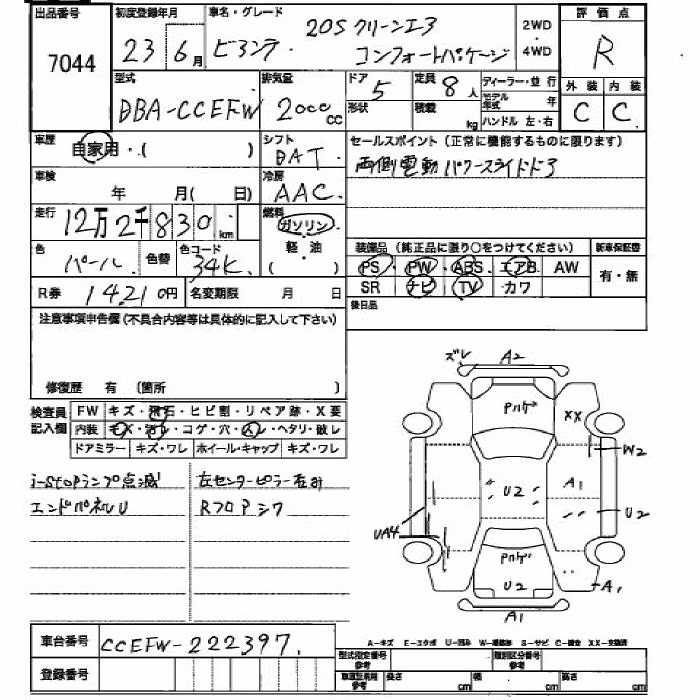 出品番号 初度登録年月 車名・グレード 2WD 評価点
7044 23年6月 ビアンテ 20S クリーンエア コンフォートパッケージ 4WD R
型式 排気量 ドア 5 定員 8人 ディーラー・並行 外装 内装
DBA-CCEFW 2000cc 形状 積載 kg モデル年式 年 C C
ハンドル 左・右
車歴 自家用・( ) シフト DAT セールスポイント (正常に機能するものに限ります)
両側電動パワースライドドア
車検 年 月( 日) 冷房 AAC
走行 12万2千830km 燃料 ガソリン・軽油 ( )
色 パール 色替 色コード 34K 装備品 (純正品に限り○をつけてください) 新車保証書
PS・PW・ABS・エアB・AW 有・無
SR ナビ TV ・カワ
R券 14210円 名変期限 月 日 後日品
注意事項申告欄(不具合内容等は具体的に記入して下さい)
修復歴 有 (箇所 )
検査員記入欄 FW キズ・飛石・ヒビ割・リペア跡・X要
内装 キズ・汚れ・コゲ・穴・スレ・ヘタリ・破レ
ドアミラー キズ・ワレ ホイール・キャップ キズ・ワレ
i-stopランプ点滅 左センターピラー
エンドパネルU Rフロアシワ
ズレ A2
XX
W2
U2 A1
U2
UA4
U2 A1
A1
車台番号 CCEFW-222397
A-キズ E-エクボ U-凹み W-補修跡 S-サビ C-腐食 XX-交換済
登録番号 型式指定番号 参考 類別区分番号 参考
車庫証明用 参考 長さ cm 幅 cm 高さ cm